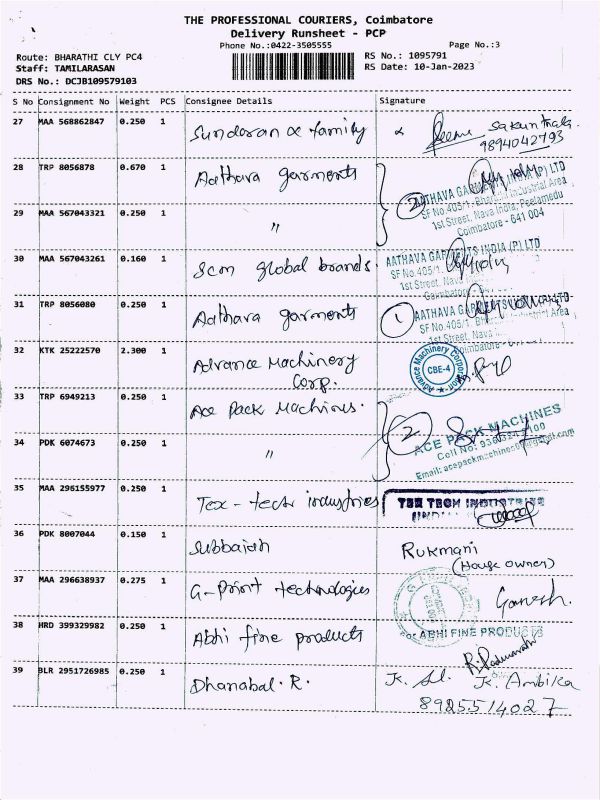 THE PROFESSIONAL COURIERS, Coimbatore
Delivery Runsheet - PCP
Phone No.:0422-3505555
Page No.:3
Route: BHARATHI CLY PC4
RS No.: 1095791
Staff: TAMILARASAN
RS Date: 10-Jan-2023
DRS No.: DCJB109579103
S No Consignment No Weight PCS Consignee Details Signature
27 MAA 568862847 0.250 1 Sundaran & family
9894042793
28 TRP 8056878 0.670 1 Aathava garments
2
AATHAVA GARMENTS INDIA (P) LTD
SF No.405/1, Bharathi Industrial Area
1st Street, Nava India, Peelamedu
Coimbatore - 641 004
29 MAA 567043321 0.250 1 "
30 MAA 567043261 0.160 1 Scm global brands.
AATHAVA GARMENTS INDIA (P) LTD
SF No.405/1,
1st Street, Nava
31 TRP 8056080 0.250 1 Aathava garments
1
AATHAVA GARMENTS
SF No.405/1, Industrial Area
1st Street, Nava India,
Coimbatore
32 KTK 25222570 2.300 1 Advance Machinery
Corp.
Advance Machinery Corporation
CBE-4
33 TRP 6949213 0.250 1 Ace Pack Machines.
2
ACE PACK MACHINES
Cell No:
Email:
34 PDK 6074673 0.250 1 "
35 MAA 296155977 0.250 1 Tex-tech industries
TEX TECH INDUSTRIES
36 PDK 8007044 0.150 1 Subbaiah
Rukmani
(House owner)
37 MAA 296638937 0.275 1 G-Print technologies
Ganesh.
38 HRD 399329982 0.250 1 Abhi fine products
For ABHI FINE PRODUCTS
39 BLR 2951726985 0.250 1 Dhanabal.R.
K. Ambika
8925514027